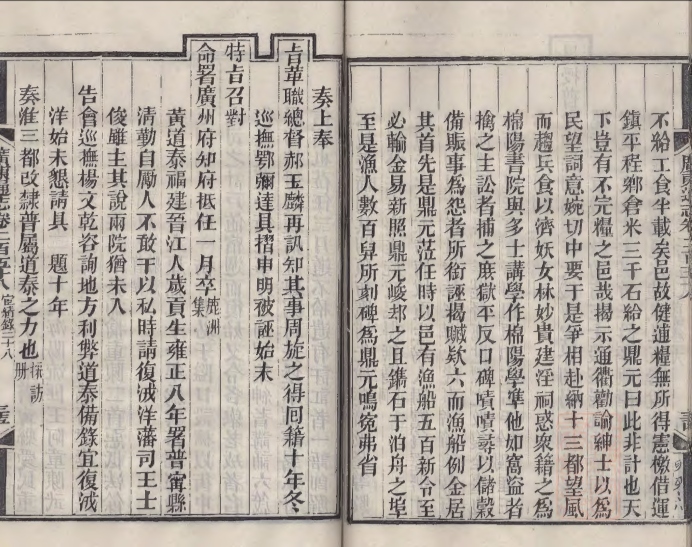 不給工食半載矣邑故健逋糧無所得憲檄借運
鎮平程鄉倉米三千石給之鼎元曰此非計也天
下豈有不完糧之邑哉揚示通衢勸諭紳士以為
民望詞意婉切中要于是爭相赴納十三都望風
而趨兵食以濟妖女林妙貴建淫祠惑衆籍之為
棉陽書院與多士講學作棉陽學準他如窩盜者
擒之主訟者捕之庶獄平反口碑嘖嘖尋以儲穀
備賑事為怨者所銜誣揭贓欵六而漁船例金居
其首先是鼎元蒞任時以邑有漁船五百新令至
必輸金易新照鼎元峻却之且鐫石于泊舟之埠
至是漁人數百舁所刻碑為鼎元鳴寃弗省
奏上奉
旨革職總督郝玉麟再訊知其事周旋之得回籍十年冬
巡撫鄂彌達具摺申明被誣始末
特旨召對
命署廣州府知府抵任一月卒 鹿洲集
黃道泰福建晉江人歲貢生雍正八年署普寧縣
清勤自勵人不敢干以私時請復㳀洋藩司王士
俊雖主其說兩院猶未入
告會巡撫楊文乾咨詢地方利弊道泰備錄宜復㳀
洋始末懇請具 題十年
奏淮三都改隸普屬道泰之力也 採訪册
廣州府志卷一百  八 宦績錄二十八